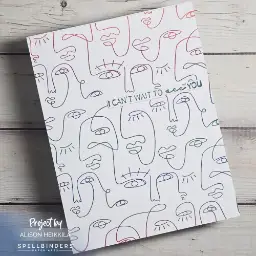 I CAN'T WAIT TO see YOU
Project by
ALISON HEIKKILA
SPELLBINDERS